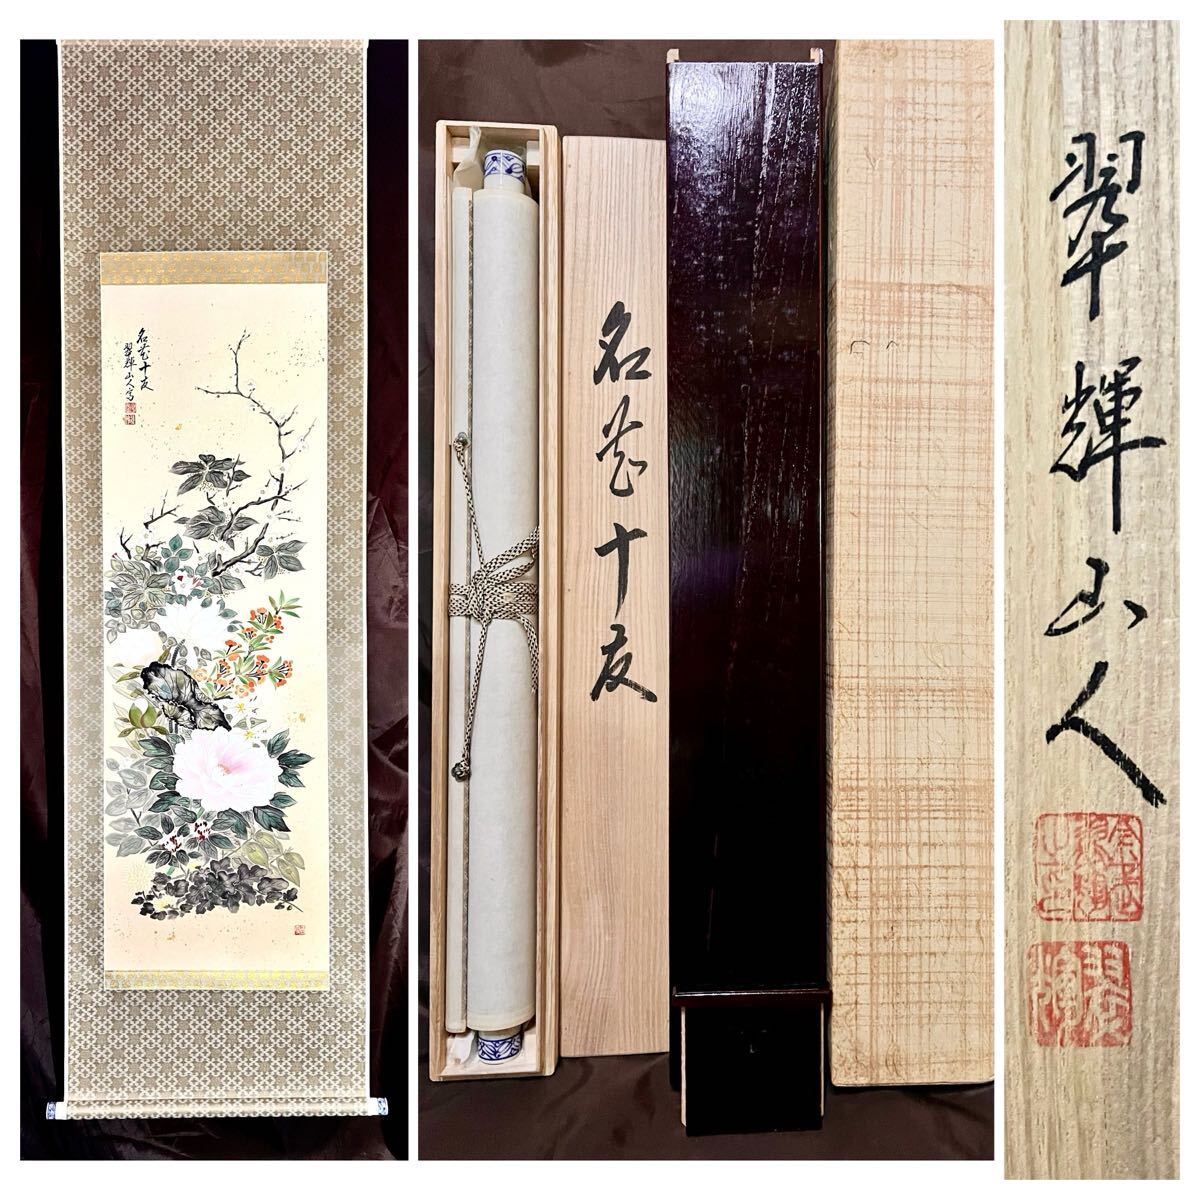 名花十友
翠輝山人写
名花十友
翠輝山人